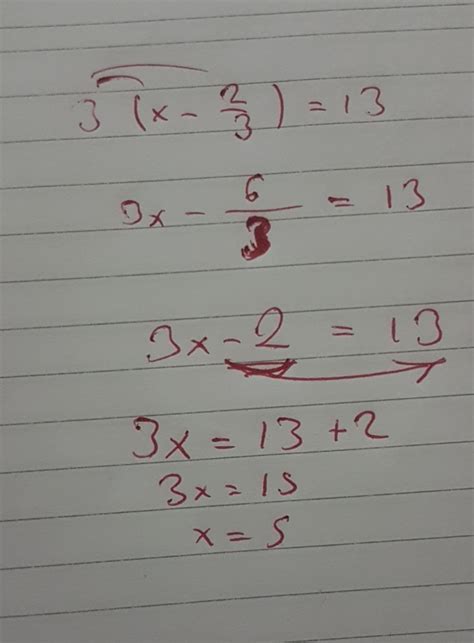 3 (x - 2/3) = 13
3x - 6/3 = 13
3x - 2 = 13
3x = 13 + 2
3x = 15
x = 5